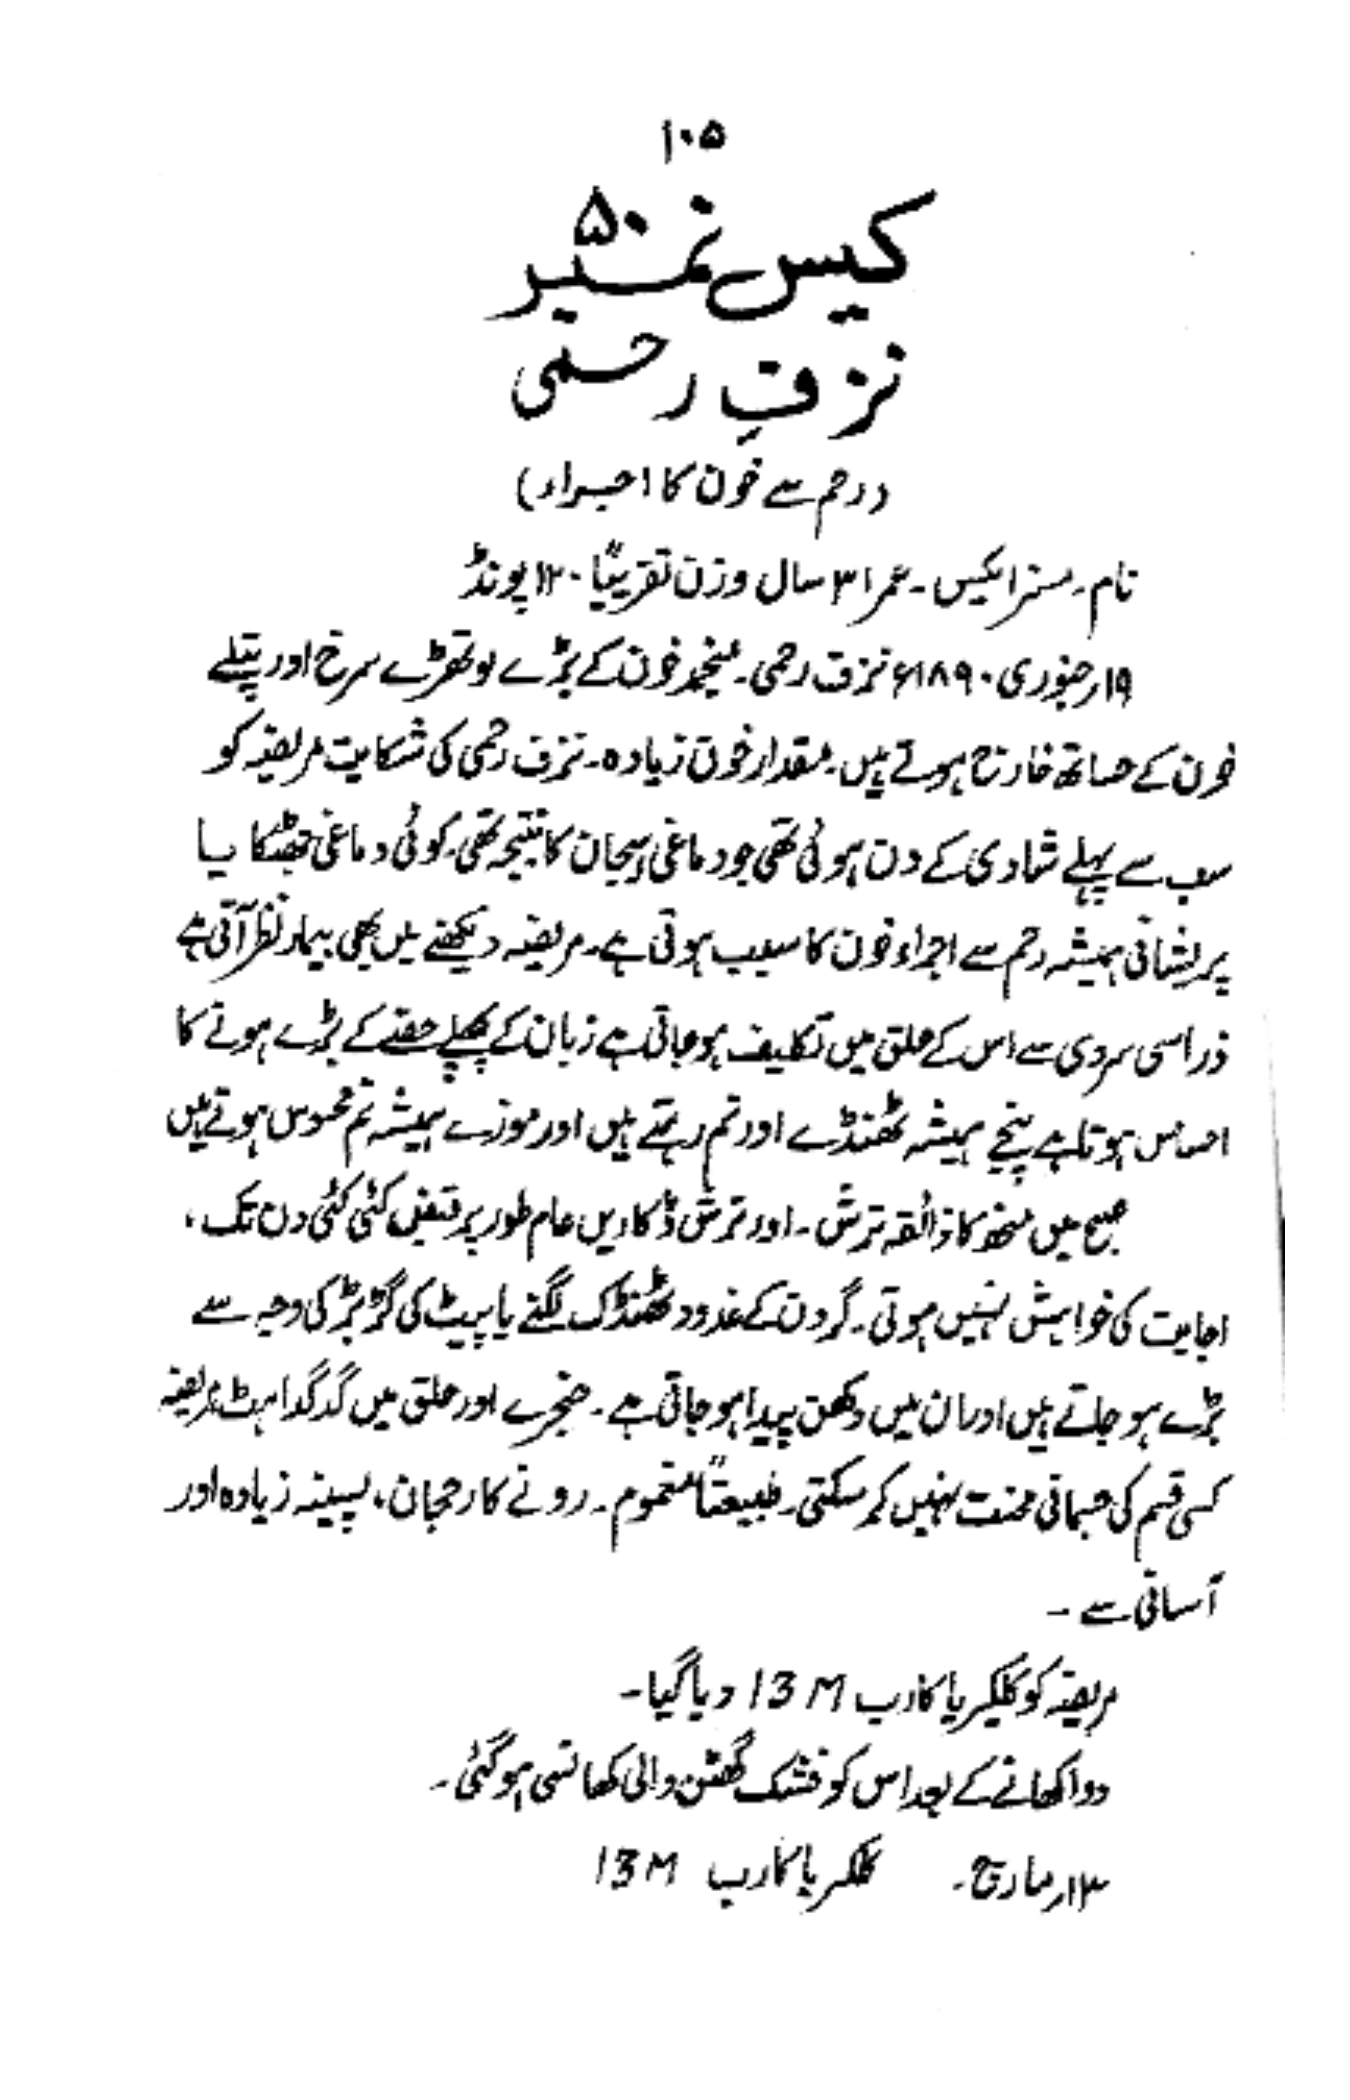 ۱۰۵
کیس نمبر ۵۰
نزفِ رحمی
(رحم سے خون کا اجراء)
نام۔ مسز ایکس۔ عمر ۳۱ سال وزن تقریباً ۱۲۰ پونڈ
۱۹ر جنوری ۱۸۹۰ء نزف رحمی۔ منجمد خون کے بڑے لوتھڑے سرخ اور پتلے
خون کے ساتھ خارج ہوتے ہیں۔ مقدار خون زیادہ۔ نزف رحمی کی شکایت مریضہ کو
سب سے پہلے شادی کے دن ہوئی تھی جو دماغی ہیجان کا نتیجہ تھی۔ کوئی دماغی جھٹکا یا
پریشانی ہمیشہ رحم سے اجراء خون کا سبب ہوتی ہے۔ مریضہ دیکھنے میں بھی بیمار نظر آتی ہے
ذرا سی سردی سے اس کے حلق میں تکلیف ہو جاتی ہے زبان کے پچھلے حصے کے بڑے ہونے کا
احساس ہوتا ہے پنجے ہمیشہ ٹھنڈے اور نم رہتے ہیں اور موزے ہمیشہ نم محسوس ہوتے ہیں
صبح میں منھ کا ذائقہ ترش۔ اور ترش ڈکاریں عام طور پر قبض کئی کئی دن تک،
اجابت کی خواہش نہیں ہوتی۔ گردن کے غدود ٹھنڈک لگنے یا پیٹ کی گڑبڑ کی وجہ سے
بڑے ہو جاتے ہیں اور ان میں دکھن پیدا ہو جاتی ہے۔ حنجرے اور حلق میں گدگداہٹ مریضہ
کسی قسم کی جسمانی محنت نہیں کر سکتی۔ طبیعتاً مغموم۔ رونے کا رحجان، پسینہ زیادہ اور
آسانی سے۔
مریضہ کو کلکیریا کارب 13 M دیا گیا۔
دوا کھانے کے بعد اس کو خشک گھٹن والی کھانسی ہو گئی۔
۱۳ر مارچ۔ کلکریا کارب 13 M